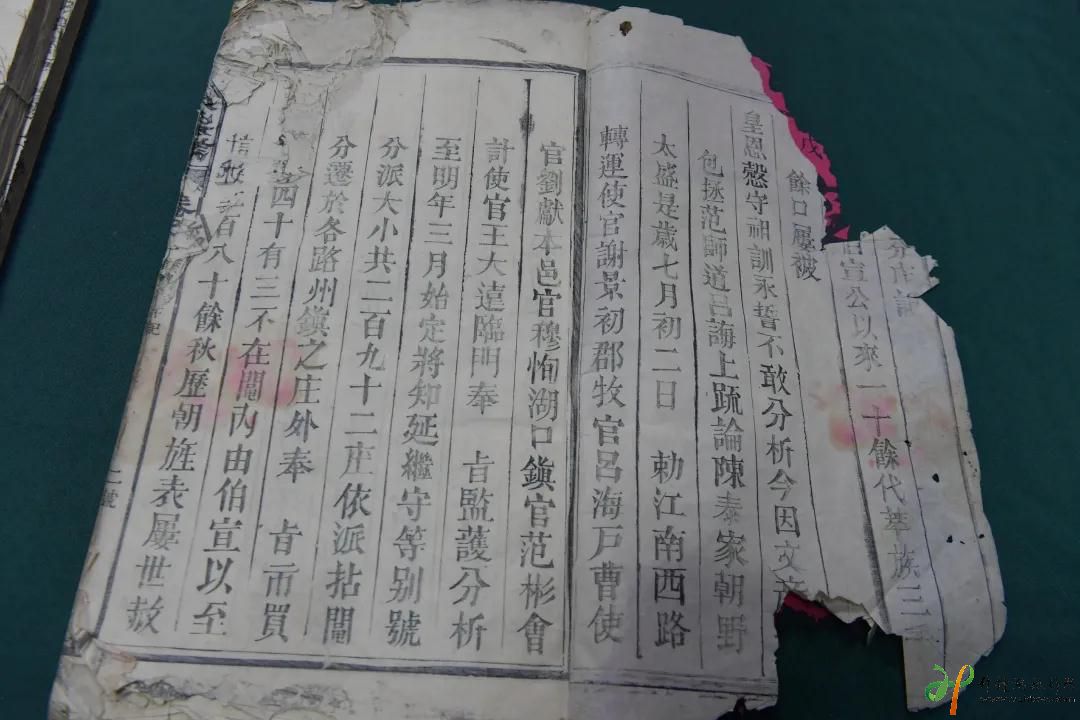 伯宣公以來一十餘代萃族三千
餘口屢被
皇恩慤守祖訓永誓不敢分析今因文彥
包拯范師道呂誨上疏論陳泰家朝野
太盛是歲七月初二日 勅江南西路
轉運使官謝景初郡牧官呂海戶曹使
官劉獻本邑官穆恂湖口鎭官范彬會
計使官王大逵臨門奉 旨監護分析
至明年三月始定將知延繼守等别號
分派大小共二百九十二庄依派拈鬮
分遷於各路州鎭之庄外奉 旨市買
四十有三不在鬮內由伯宣以至
百八十餘秋歷朝旌表屢世敖